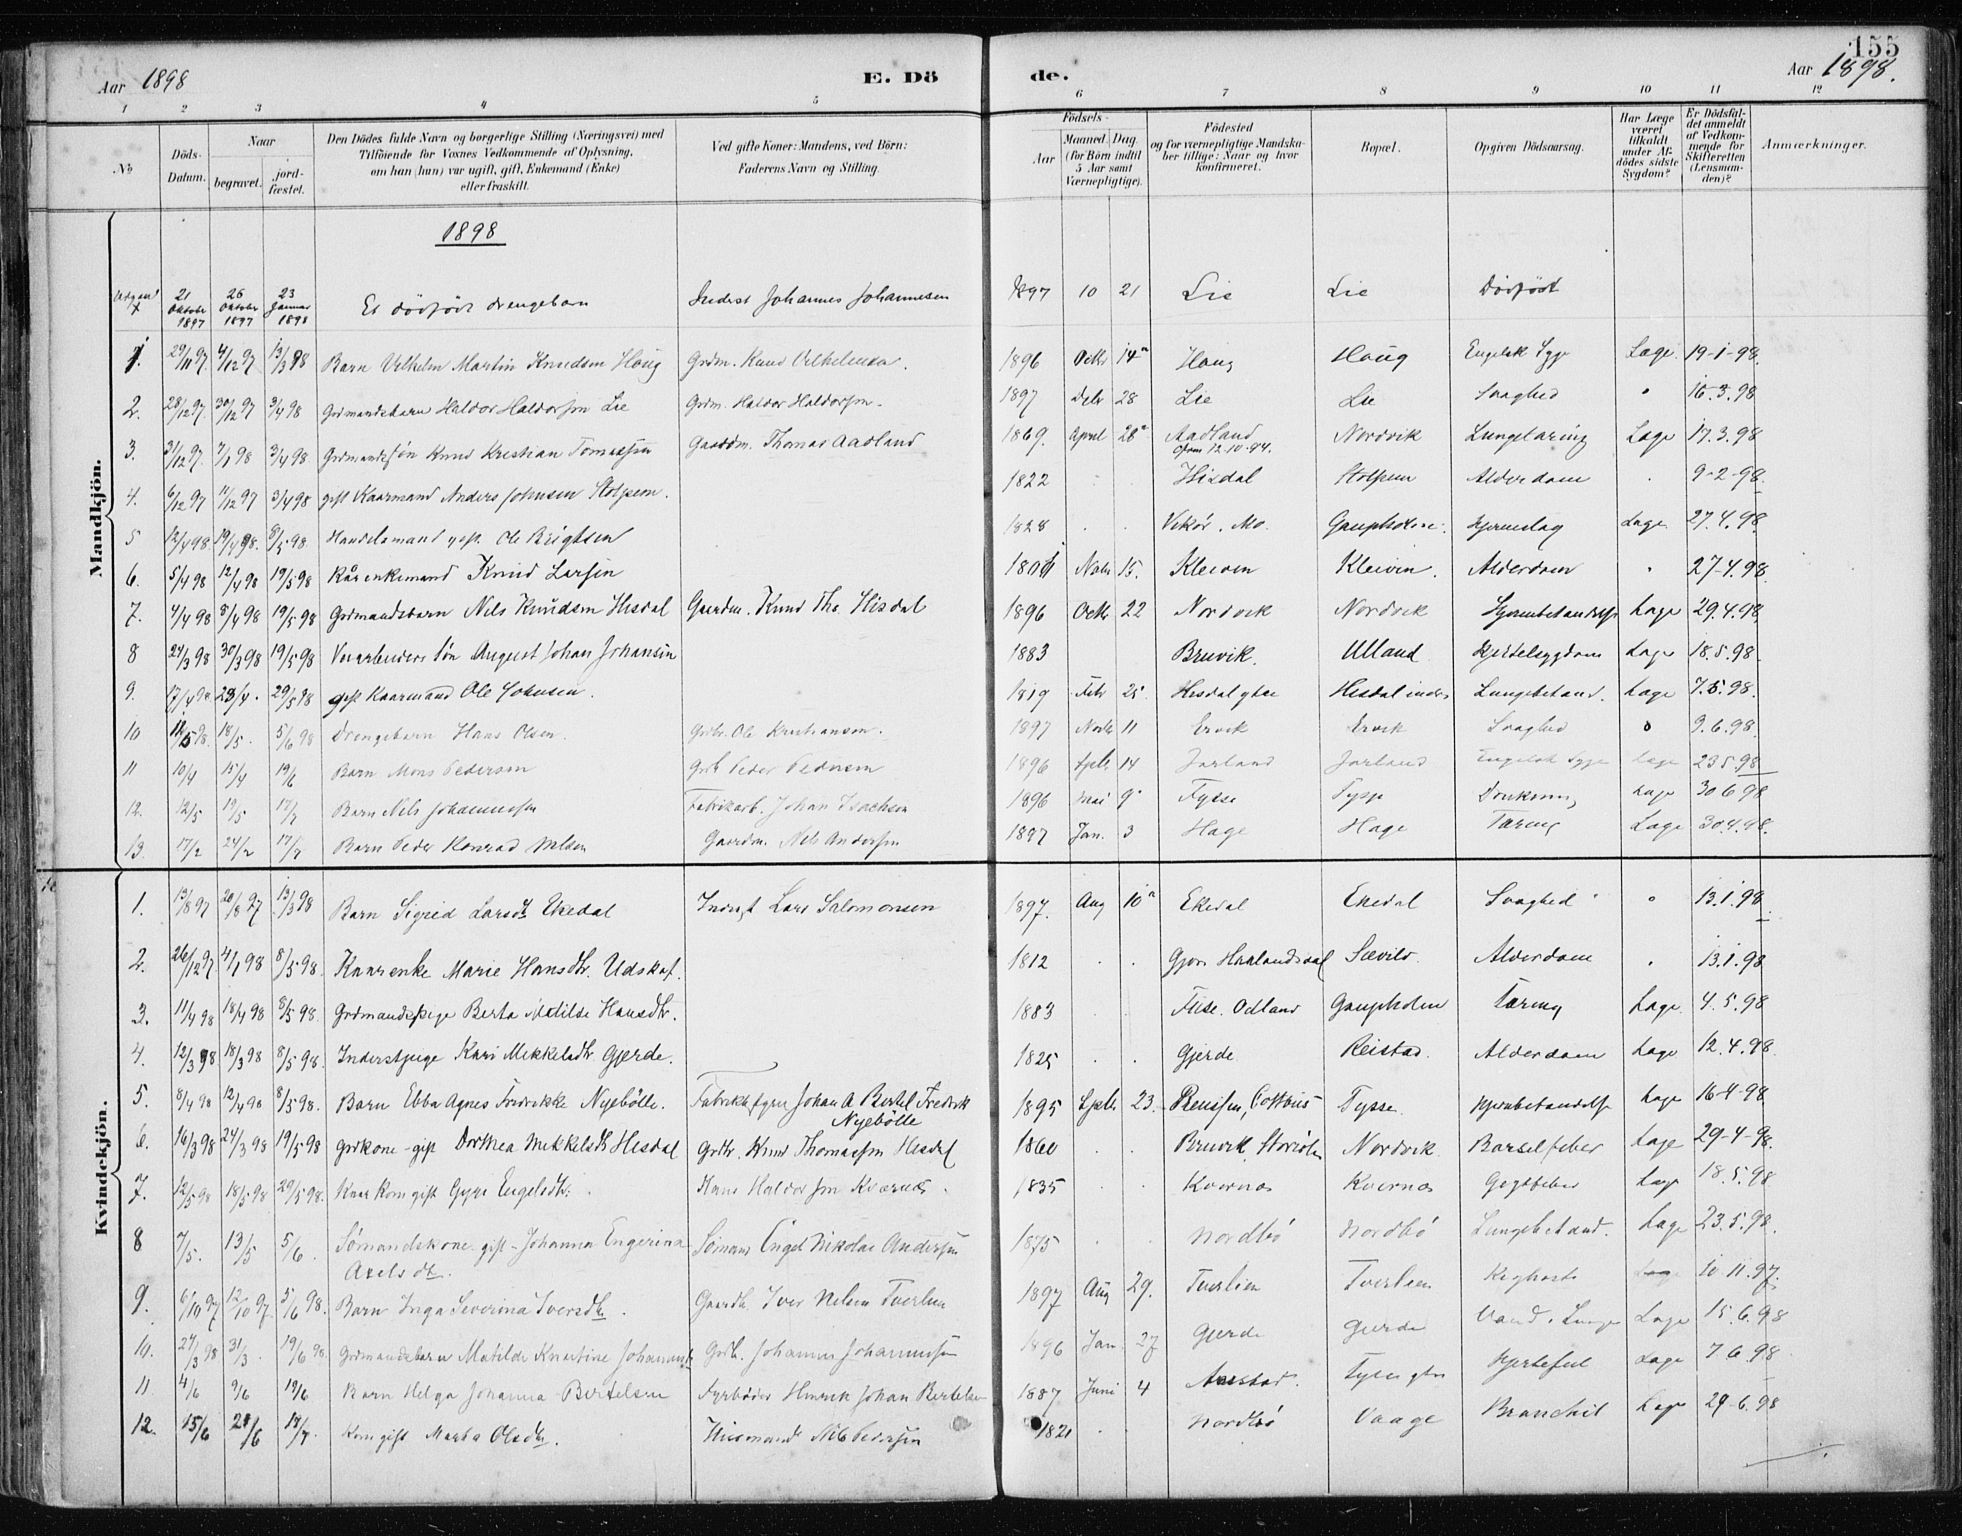 155
Aar 1898
E. Dö
de.
Aar 1898.
1 2 3 4 5 6 7 8 9 10 11 12
No.
Döds-Datum.
Naar
begravet.
jordfæstet.
Den Dödes fulde Navn og borgerlige Stilling (Næringsvei) med
Tilföiende for Voxnes Vedkommende af Oplysning,
om han (hun) var ugift, gift, Enkemand (Enke)
eller fraskilt.
Ved gifte Koner: Mandens, ved Börn:
Faderens Navn og Stilling.
Födsels-
Aar
Maaned. Dag.
(for Börn indtil
5 Aar samt
Værnepligtige).
Födested
og for værnepligtige Mandskaber tillige: Naar og hvor
konfirmeret.
Bopæl.
Opgiven Dödsaarsag.
Har Læge
været
tilkaldt
under Afdödes sidste
Sygdom?
Er Dödsfaldet anmeldt
af Vedkommende for
Skifteretten
(Lensmanden)?
Anmærkninger.
Mandkjön.
1898
21 Oktober 1897 26 Oktober 1897 23 Januar 1898 Et dödfödt drengebarn Inderst Johannes Johannesen 1897 10 21 Lie Lie Dödfödt
1. 29/11 97. 4/12 97 13/3 98 Barn Vilhelm Martin Knudsen Haug Grdm. Knud 1896 Octbr 14 Haug Haug Engelsk Syge Læge 19-1-98.
2. 28/12 97. 30/12 97 3/4 98 Grdmandsbarn Haldor Haldorsen Lie Grdm. Haldor Haldorsen 1897 Dcbr 28 Lie Lie Svaghed 16.3.98
3. 31/12 97. 7/1 98 3/4 98. Grdmandssön Knud Kristian Tomassen Gaardm. Thomas Aadland 1869. April 28 Aadland Nordvik Lungetæring Læge 17.3.98
12.10.94.
4. 6/12 97 11/12 97 3/4 98 gift Kaarmand Anders Johnsen Stolpem. 1822 Hisdal Alderdom 9-2-98
5 12/4 98. 19/4 98. 8/5 98. Handelsmand gift. Ole 1828 Vikör. Mo. Gaupholm. Læge 27.4.98
6. 5/4 98 12/4 98 19/5 98 Kårenkemand Knud Larsen Novbr 15. Kleiven Kleiven. Alderdom 27-4.98
7. 4/4 98 8/4 98 19/5 98 Grdmandsbarn Nils Knudsen Hisdal Gaardm. Knud Tho. Hisdal 1896 Octbr 22 Nordvik Nordvik Læge 29.4.98
8 24/3 98 30/3 98 19/5 98 sön August Johan Johansen 1883 Bruvik. Ulland Kjertelsygdom Læge 18.5.98
9. 17/4 98 23/4. 29/5 98 gift Kaarmand Ole Johnsen. 1819 Febr 25 Hisdal Hisdal indre Lungebetænd. Læge 7.5.98.
10 11/5 98. 18/5. 5/6 98 Drengebarn Hans Olsen. Grdbr. Ole Kristiansen. 1897 Novbr 11 Ervik Ervik Svaghed 9.6.98.
11 10/4 15/4 19/6 Barn Mons Pedersen Grdb Peder Pedersen 1896 Spbr. 14 Jarland Jarland Engelsk Syge Læge 23.5.98
12. 12/5 19/5 17/7 Barn Nils Johannessen Fabrikarb. Johan Isachsen 1896 Mai 9 Tysse Tysse Læge 30 6 98
13. 17/2 24/2 17/7 Barn Peder Konrad Nilsen Gaardm. Nils Andersen 1897 Jan. 3 Hage Hage Tæring Læge 30.4.98.
Kvindekjön.
1. 13/8 97 20/8 97 13/3 98 Barn Sigrid Larsdtr. Ekedal Inderst Lars Salomonsen 1897. Aug 10 Ekedal Ekedal Svaghed 13.1.98
2. 26/12 97. 4/1 98 8/5 98. Kaarenke Marie Hansdtr. Udskot. 1812 Haalandsdal Sævild. Alderdom 13.1.98
3. 11/4 98 18/4 98 8/5 98. Grdmandspige Berta Matilde Hansdtr. 1883 Odland Gaupholm Tæring Læge 4.5.98
4. 12/3 98 18/3 98 8/5 98. Inderstpige Kari Mikkelsdtr Gjerde. 1825 Gjerde Reistad. Alderdom Læge 12.4.98
5. 8/4 98 12/4 98 8/5 98. Barn Ebba Agnes Fredrikke Nyebölle. Johan A Bertel Fredrik 1895 Spbr. 23. Preussen, Cottbus Tysse. Læge 16-4-98
Nyebölle
6. 16/3 98 24/3 98 19/5 98 Grdkone-gift Dorthea Mikkelsdtr Hisdal Grdbr. Knud Thomassen Hisdal 1860 Bruvik, Nordvik. Barselfeber Læge 29-4-98.
7. 12/5 98 18/5 98 29/5 98. Kaarkone gift Gyri Engelsdtr. Hans Haldorsen Kvernæs. 1835 Kvernæs Kvernæs Læge 18.5.98
8 7/5. 13/5 5/6. Sömandskone. gift-Johanna Engerina Sömand Engel Nikolai Andersen 1875 Nordbö Nordbö Lungebetænd. Læge 23.5.98
Axelsdtr.
9. 6/10 97 12/10 97. 5/6 98. Barn Inga Severina Iversdtr. Gaardb. Iver Nilsen Tverlien 1897 Aug 29. Tverlien Tverlien Kighoste 10 11.97.
10. 24/3 98 31/3. 19/6 98. Grdmandsbarn Matilde Knurtine Johannsdtr Grdb. Johannes Johannessen 1896 Jan. 27 Gjerde Gjerde Læge 15.6.98
11. 4/6 9/6 19/6 Barn Helga Johanna Bertelsen Fyrböder Henrik Johan Bertelsen 1887 Juni 4 Aarstad. Hjertefeil Læge 7.6.98
12. 15/6 28/6 18/7 Kone gift Marta Olsdtr. Husmand Nils Pedersen 1821 Nordbö Vaage Læge 29-6.98